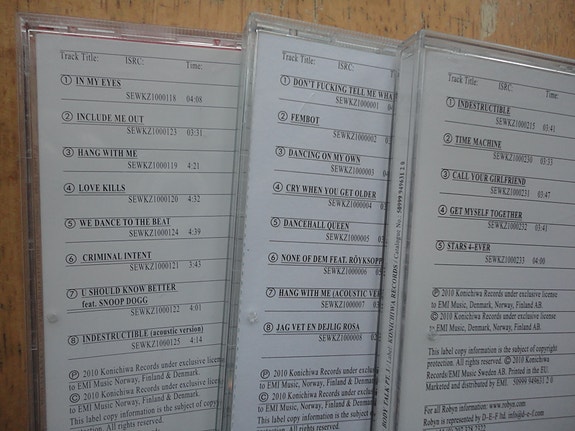 Track Title: ISRC: Time:
① IN MY EYES
SEWKZ1000118 04:08
② INCLUDE ME OUT
SEWKZ1000123 03:31
③ HANG WITH ME
SEWKZ1000119 4:21
④ LOVE KILLS
SEWKZ1000120 4:32
⑤ WE DANCE TO THE BEAT
SEWKZ1000124 4:39
⑥ CRIMINAL INTENT
SEWKZ1000121 3:43
⑦ U SHOULD KNOW BETTER
feat. SNOOP DOGG
SEWKZ1000122 4:01
⑧ INDESTRUCTIBLE (acoustic version)
SEWKZ1000125 4:14
Ⓟ 2010 Konichiwa Records under exclusive license
to EMI Music, Norway, Finland & Denmark.
© 2010 Konichiwa Records under exclusive
to EMI Music, Norway, Finland & Denmark.
This label copy information is the subject of copy
protection. All rights reserved.
Track Title: ISRC:
① DON'T FUCKING TELL ME WHA
SEWKZ1000001
② FEMBOT
SEWKZ1000002
③ DANCING ON MY OWN
SEWKZ1000003
④ CRY WHEN YOU GET OLDER
SEWKZ1000004
⑤ DANCEHALL QUEEN
SEWKZ1000005
⑥ NONE OF DEM FEAT. RÖYKSOPP
SEWKZ1000006
⑦ HANG WITH ME (ACOUSTIC VER
SEWKZ1000007
⑧ JAG VET EN DEJLIG ROSA
SEWKZ1000008
Ⓟ 2010 Konichiwa Records under exclusive
to EMI Music, Norway, Finland & Denmark.
© 2010 Konichiwa Records under exclusive
to EMI Music, Norway, Finland & Denmark.
This label copy information is the subject of
protection. All rights
BODY TALK PT. 3 / Label: KONICHIWA RECORDS / Catalogue No.: 50999 949631 2 0
Track Title: ISRC: Time:
① INDESTRUCTIBLE
SEWKZ1000215 03:41
② TIME MACHINE
SEWKZ1000230 03:33
③ CALL YOUR GIRLFRIEND
SEWKZ1000231 03:47
④ GET MYSELF TOGETHER
SEWKZ1000232 03:41
⑤ STARS 4-EVER
SEWKZ1000233 04:00
Ⓟ 2010 Konichiwa Records under exclusive license
to EMI Music, Denmark, Norway, Finland AB.
© 2010 Konichiwa Records under exclusive license
to EMI Music, Denmark, Norway, Finland AB.
This label copy information is the subject of copyright
protection. All rights reserved. © 2010 Konichiwa
Records/EMI Music Sweden AB. Printed in the EU.
Marketed and distributed by EMI. 50999 949631 2 0
For all Robyn information: www.robyn.com
Robyn is represented by D-E-F ltd. info@d-e-f.com